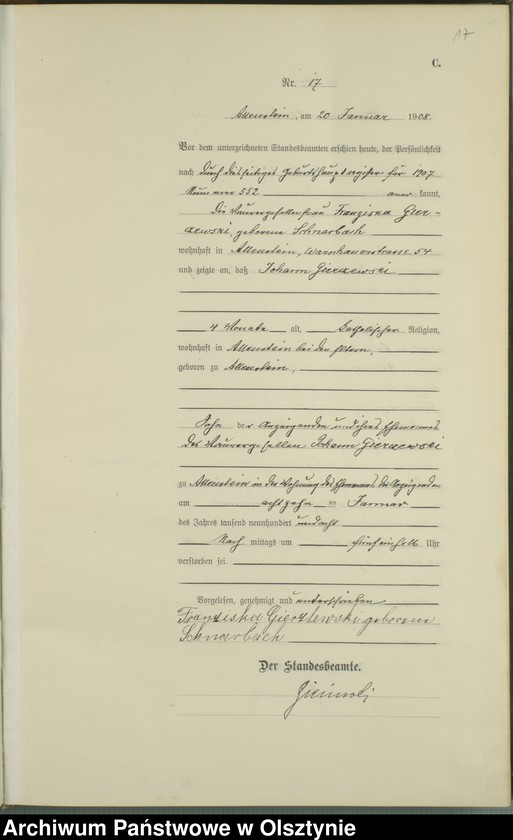 17
C.
Nr. 17
Allenstein, am 20 Januar 1908.
Vor dem unterzeichneten Standesbeamten erschien heute, der Persönlichkeit
nach durch diesseitiges Geburtshauptregister für 1907
Nummer 552 aner kannt,
die Maurergesellenfrau Franziska Gier-
zewski, geborene Schnarbach
wohnhaft in Allenstein, Warschauerstrasse 54
und zeigte an, daß Johann Gierzewski
4 Monate alt, katholischer Religion,
wohnhaft in Allenstein bei den Eltern,
geboren zu Allenstein,
Sohn der Anzeigenden und ihres Ehemannes
des Maurergesellen Johann Gierzewski
zu Allenstein in der Wohnung des Ehemannes der Anzeigenden
am achtzehn ten Januar
des Jahres tausend neunhundert und acht
Nach mittags um fünfeinhalb Uhr
verstorben sei.
Vorgelesen, genehmigt und unterschrieben
Franziska Gierzewski geborene
Schnarbach
Der Standesbeamte.
Archiwum Państwowe w Olsztynie